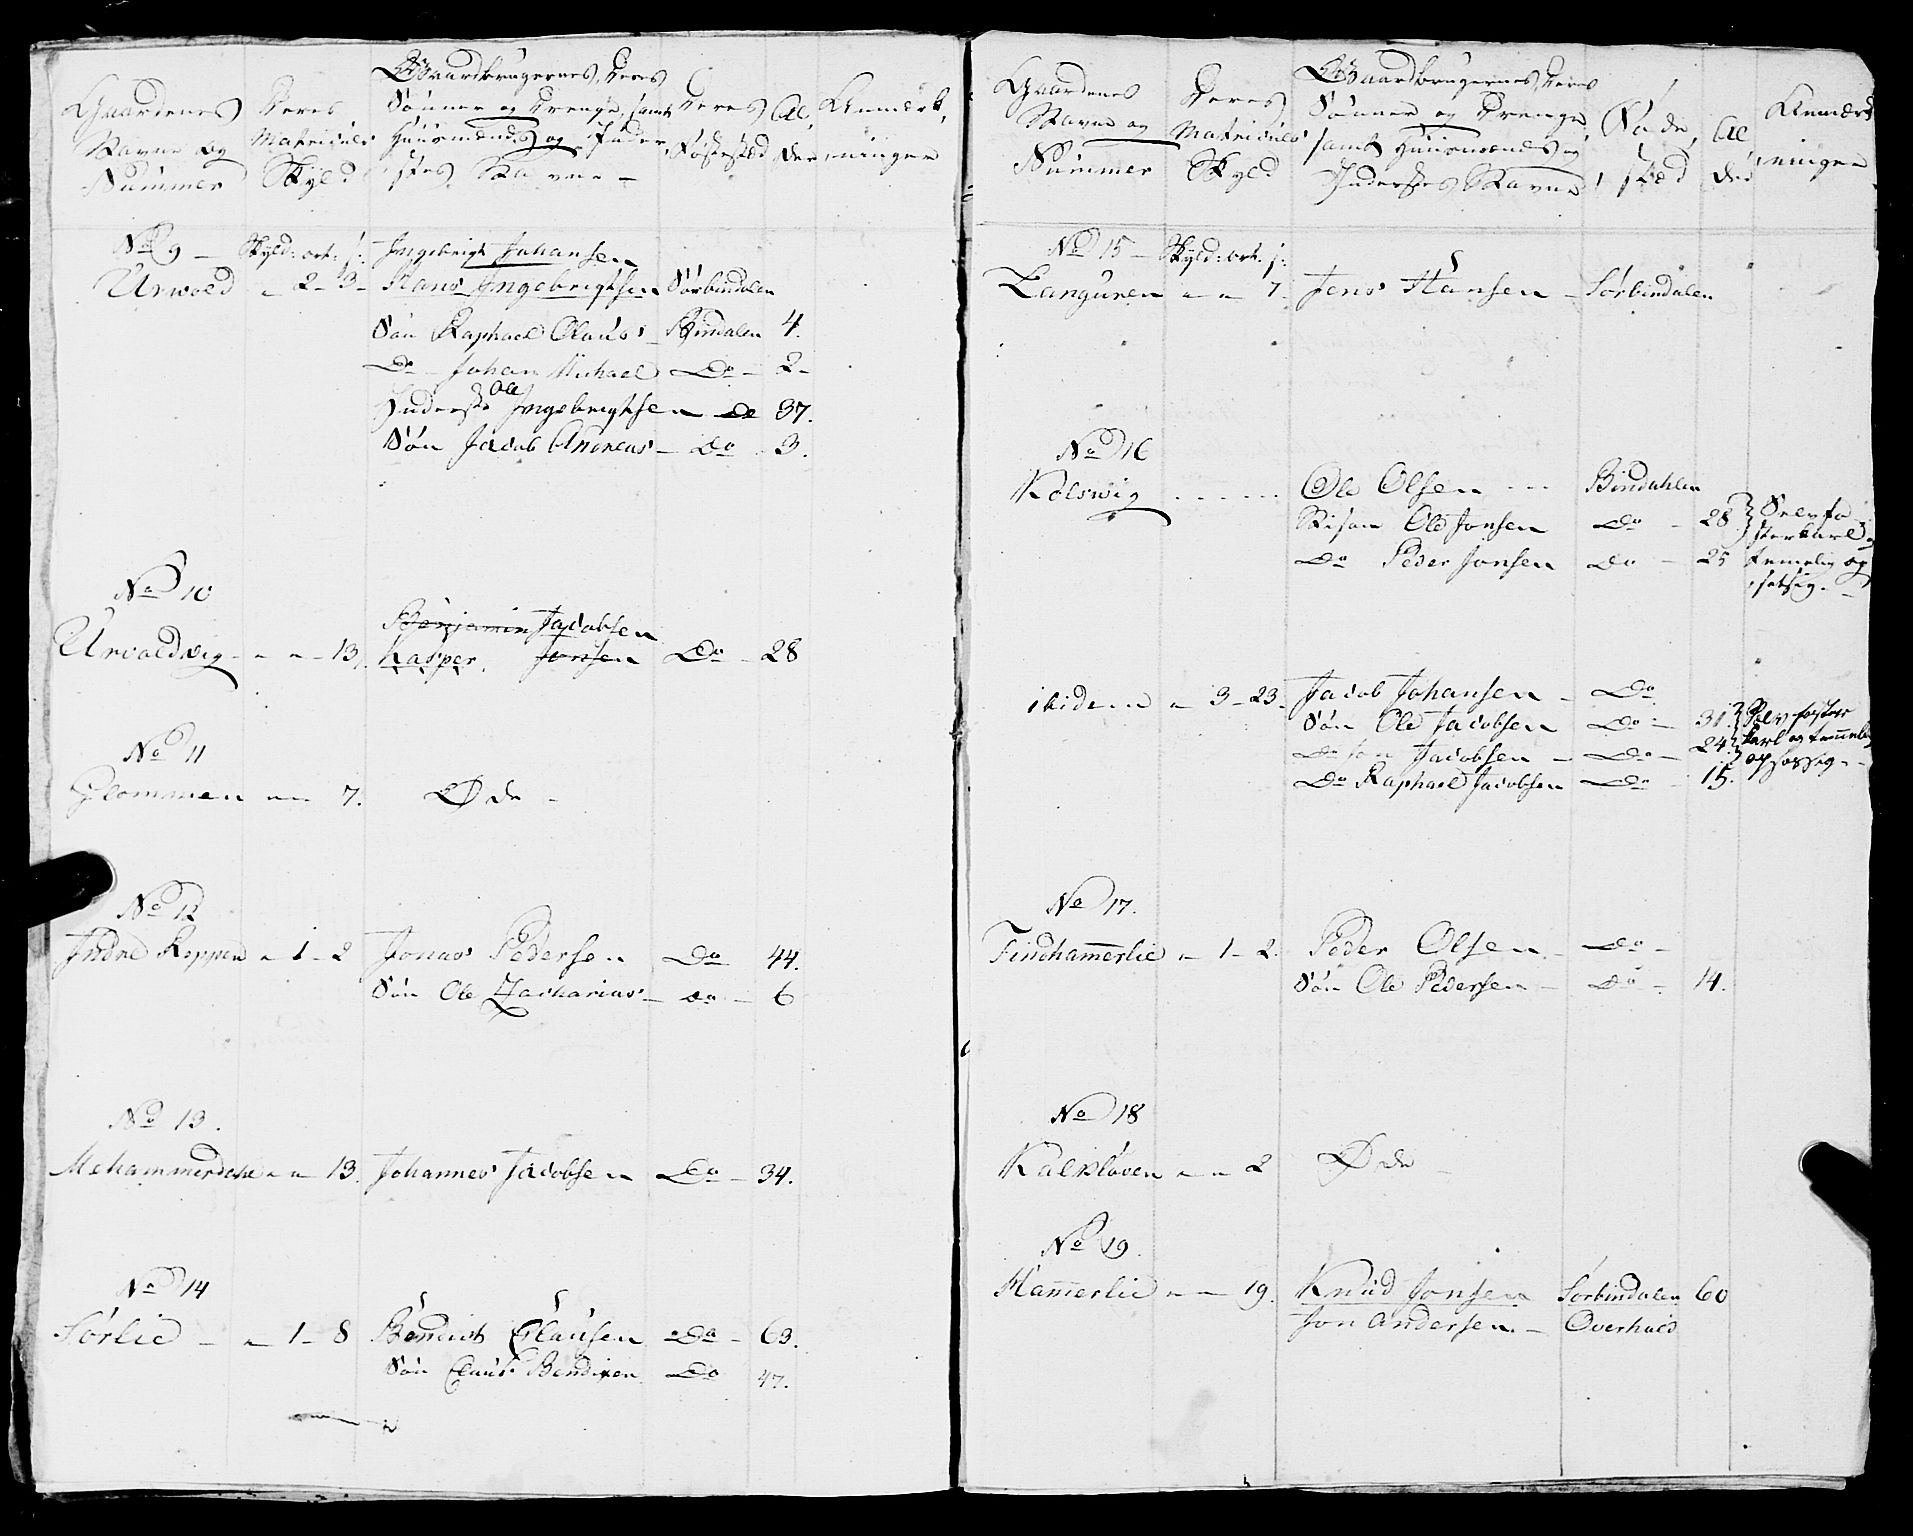 Gaardenes Navne og Nummer | Deres Matriculs Skyld | Gaardbrugernes, deres Sønner og Drenge, samt Huusmænds og Inderstes Navne | Deres Fødested | Al der | Anmærkninger
No 9 - Skyld: ort: s: Ingebrigt Johansen
Urwold - 2 - 3 - Hans Ingebrigtsen Sørbindalen
Søn Raphael Olaus Bindalen 4.
Do - Johan Michael Do - 2 -
Inderste Ole Ingebrigtsen Do 37.
Søn Jacob Andreas - Do 3.
No 10
Benjamin Jacobsen
Urvoldvig - " - " - 13 Kasper Jonsen Do - 28
No 11
Glommen " - " 7. Øde -
No 12
Indre Reppen " 1 - 2 Jonas Pedersen Do 44.
Søn Ole Zacharias - Do - 6
No 13.
Mehammerdahl " - " 13. Johannes Jacobsen Do - 34.
No 14
Sørlie - " 1 - 8 Bendict Clausen Do - 63.
Søn Claus Bendixen Do 47.
Gaardenes Navne og Nummer | Deres Matriculs Skyld | Gaardbrugernes, deres Sønner og Drenge samt Huusmænds og Inderstes Navne | Føde sted | Al der | Anmærkninger
No 15 - Skyld: ort. s:
Languren " - " 7. Jens Hansen - Sørbindalen
No 16
Kolsvig Ole Olsen Bindahlen
Ole Jonsen Do - 28
Do Peder Jonsen Do - 25
temelig op
ibidem " 3 - 23. Jacob Johansen - Do
Søn Ole Jacobsen Do - 31.
Do Jacobsen - Do - 24.
Do Raphael Jacobsen Do - 15.
No 17.
Findhammerlie " 1 - 2. Peder Olsen - Do -
Søn Ole Pedersen - Do - 14.
No 18
Kalkløven " - " 2 Øde -
No 19.
Hammerlie " - " 19. Knud Jonsen Sørbindalen 60
Jon Andersen. - Overhald